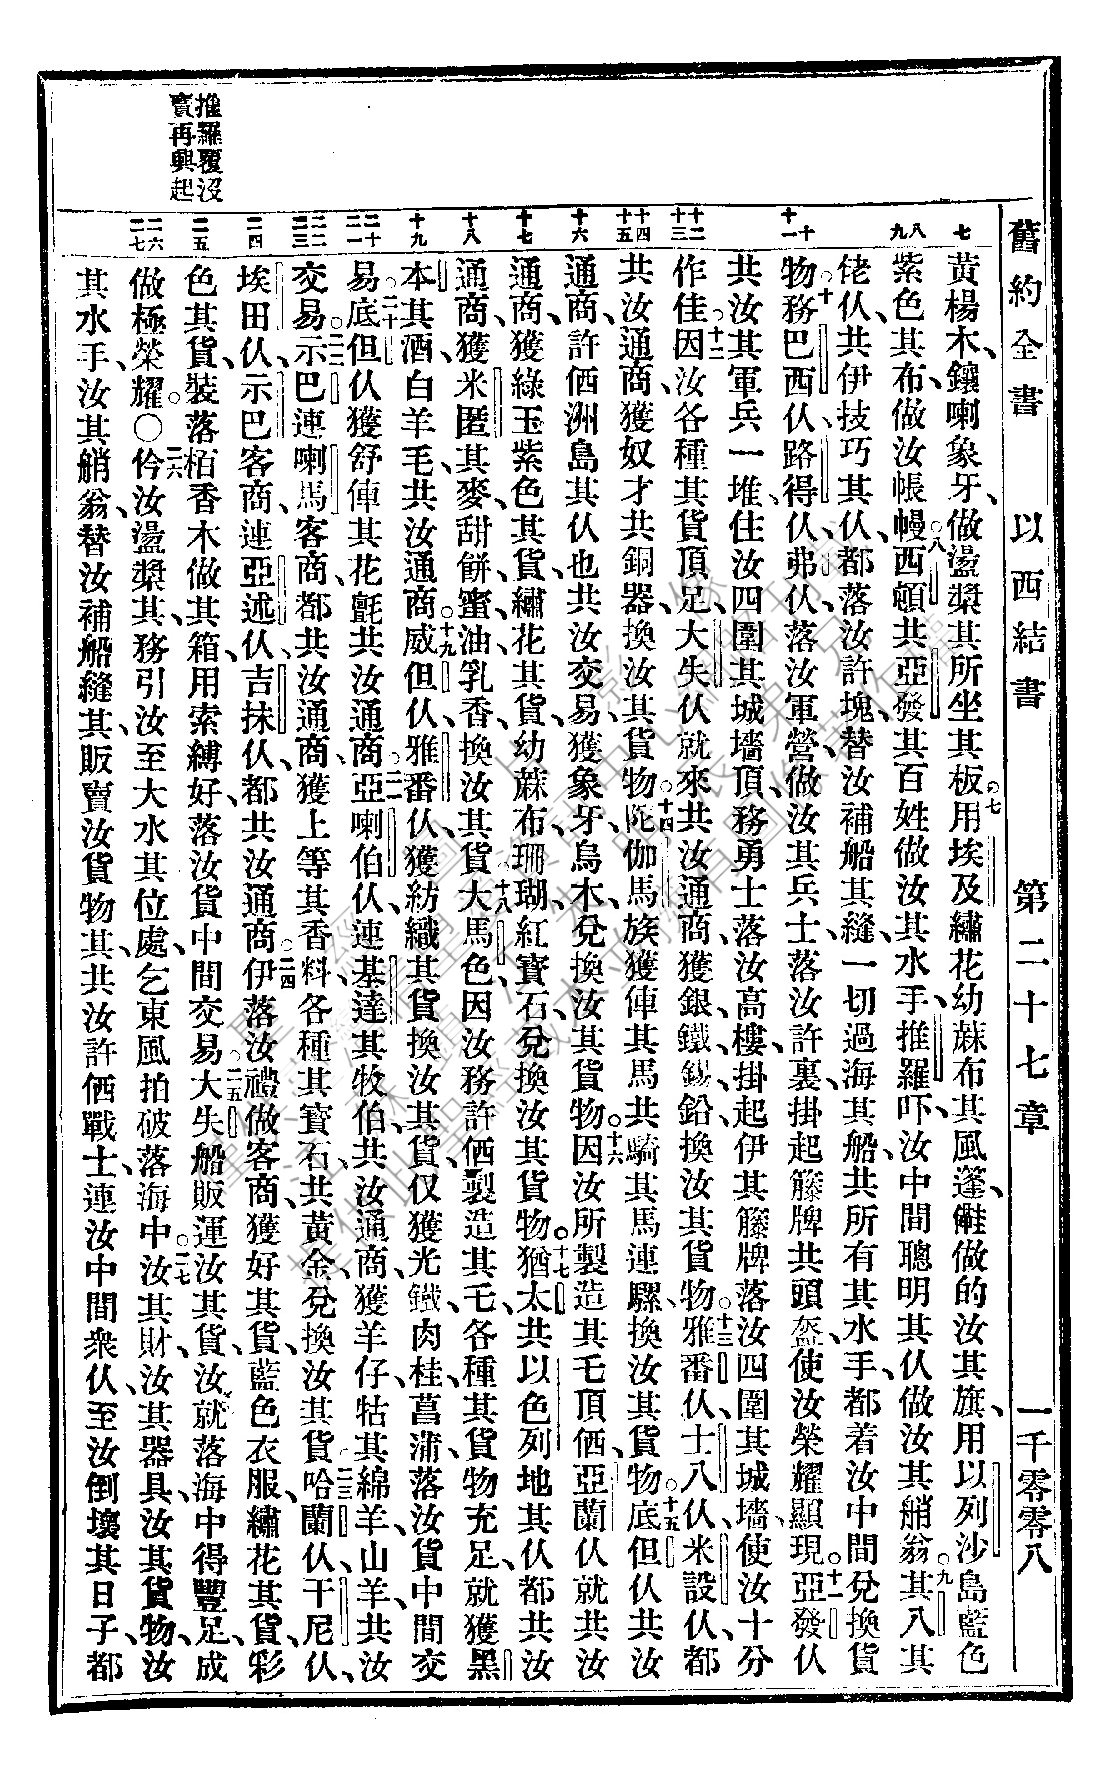 舊約全書 以西結書 第二十七章 一千零零八
七
八
九
十
十一
十二
十三
十四
十五
十六
十七
十八
十九
二十
二一
二二
二三
二四
二五
二六
二七
黃楊木、鑲喇象牙、做盪槳其所坐其板。七用埃及繡花幼蔴布其風篷、做的汝其旗、用以列沙島藍色
紫色其布、做汝帳幔。八西頓共亞發其百姓做汝其水手、推羅吓、汝中間聰明其仈做汝其艄翁。九其八其
佬仈、共伊技巧其仈、都落汝許塊、替汝補船其縫、一切過海其船、共所有其水手、都着汝中間兌換貨
物務。十巴西仈路得仈、弗仈、落汝軍營、做汝其兵士、落汝許裏、掛起籐牌共頭盔、使汝榮耀顯現。十一亞發仈
共汝其軍兵一堆、住汝四圍其城墻頂、務勇士落汝高樓、掛起伊其籐牌、落汝四圍其城墻、使汝十分
作佳。十二因汝各種其貨頂足、大失仈就來共汝通商、獲銀、鐵、錫、鉛換汝其貨物。十三雅番仈、士八仈、米設仈、都
共汝通商、獲奴才共銅器、換汝其貨物。十四陀伽馬族獲俥其馬、共騎其馬連騾、換汝其貨物。十五底但仈共汝
通商、許㑚洲島其仈也共汝交易、獲象牙、烏木、兌換汝其貨物。十六因汝所製造其乇頂㑚、亞蘭仈就共汝
通商、獲綠玉紫色其貨、繡花其貨、幼蔴布、珊瑚、紅寶石、兌換汝其貨物。十七猶太共以色列地其仈、都共汝
通商、獲米匿其麥、甜餅、蜜、油、乳香、換汝其貨。十八大馬色因汝務許㑚製造其乇、各種其貨物充足、就獲黑
本其酒、白羊毛、共汝通商。十九威但仈、雅番仈、獲紡織其貨換汝其貨、仅獲光鐵、肉桂、菖蒲、落汝貨中間交
易。二十底但仈獲舒俥其花氈共汝通商。二一亞喇伯仈連基達其牧伯、共汝通商、獲羊仔、牯其綿羊、山羊、共汝
交易。二二示巴連喇馬客商、都共汝通商、獲上等其香料、各種其寶石、共黃金、兌換汝其貨。二三哈蘭仈、干尼仈、
埃田仈、示巴客商、連亞述仈、吉抹仈、都共汝通商。二四伊落汝禮做客商、獲好其貨、藍色衣服、繡花其貨、彩
色其貨、裝落栢香木做其箱、用索縛好、落汝貨中間交易。二五大失船販運汝其貨、汝就落海中得豐足、成
做極榮耀。〇二六伱汝盪槳其、務引汝至大水其位處、乞東風拍破落海中。二七汝其財、汝其器具、汝其貨物、汝
其水手、汝其艄翁、替汝補船縫其、販賣汝貨物其、共汝許㑚戰士、連汝中間衆仈、至汝倒壞其日子、都
推羅覆沒
賣再興起